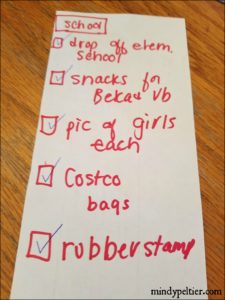 school
drop off elem.
school
snacks for
Bekah Vb
pic of girls
each
Costco
bags
rubberstamp
mindypeltier.com